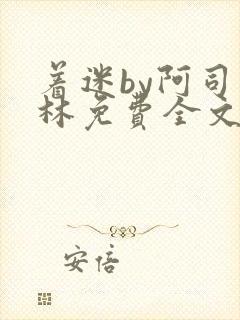 着迷by阿司
林免费全文
安倍